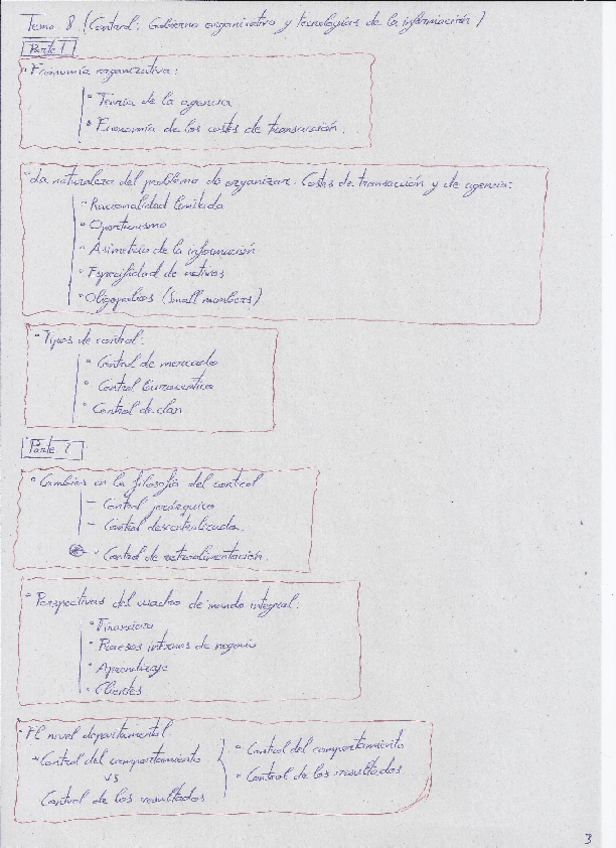 Tema 8 (Control: Gobierno organizativo y tecnologías de la información)
Parte 1
• Economía organizativa:
• Teoría de la agencia
• Economía de los costes de transacción.
• La naturaleza del problema de organizar. Costes de transacción y de agencia:
• Racionalidad limitada
• Oportunismo
• Asimetría de la información
• Especificidad de activos
• Oligopolios (Small numbers)
- Tipos de control:
• Control de mercado
• Control burocrático
• Control de clan
Parte 2
• Cambios en la filosofía del control
- Control jerárquico
- Control descentralizado.
• Control de retroalimentación.
• Perspectivas del cuadro de mando integral:
• Financiera
• Procesos internos de negocio
• Aprendizaje
• Clientes
• El nivel departamental.
Control del comportamiento
vs
Control de los resultados
• Control del comportamiento
• Control de los resultados
3